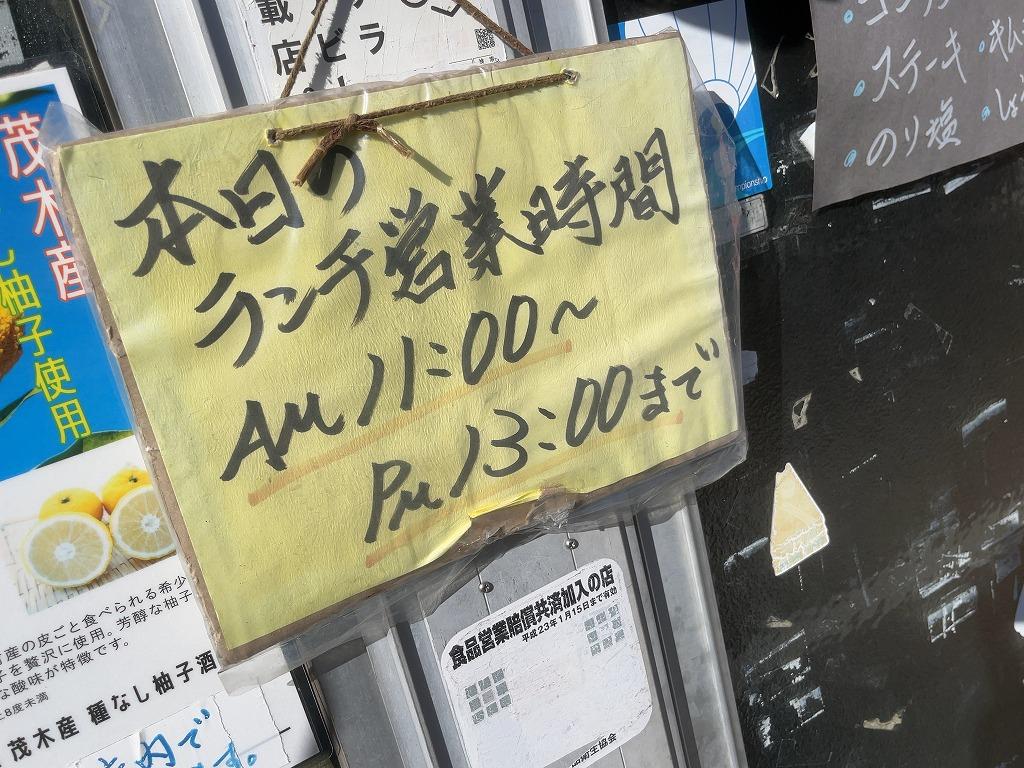 載店
ビラ
コンソ
・ステーキ
・のり塩
・キム
・しょ
mpionship
本日の
ランチ営業時間
AM 11:00〜
PM 13:00まで
茂木産
し柚子使用
産の皮ごと食べられる希少
を贅沢に使用。芳醇な柚子
な酸味が特徴です。
8度未満
茂木産 種なし柚子酒
内で
す。
食品営業賠償共済加入の店
平成23年1月15日まで有効
衛生協会